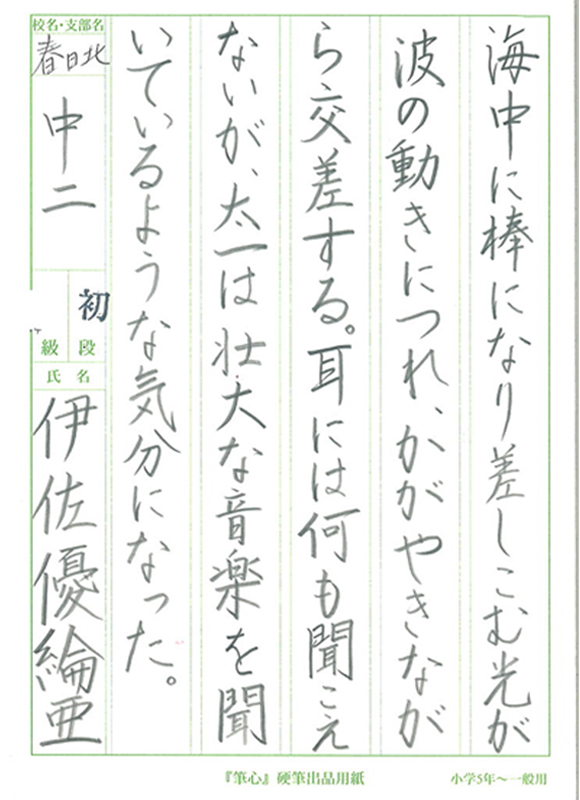 海中に棒になり差しこむ光が
波の動きにつれ、かがやきなが
ら交差する。耳には何も聞こえ
ないが、太一は壮大な音楽を聞
いているような気分になった。
校名・支部名
春日北
中二
初
段
級
氏名
伊佐優綸亜
『筆心』硬筆出品用紙
小学5年～一般用